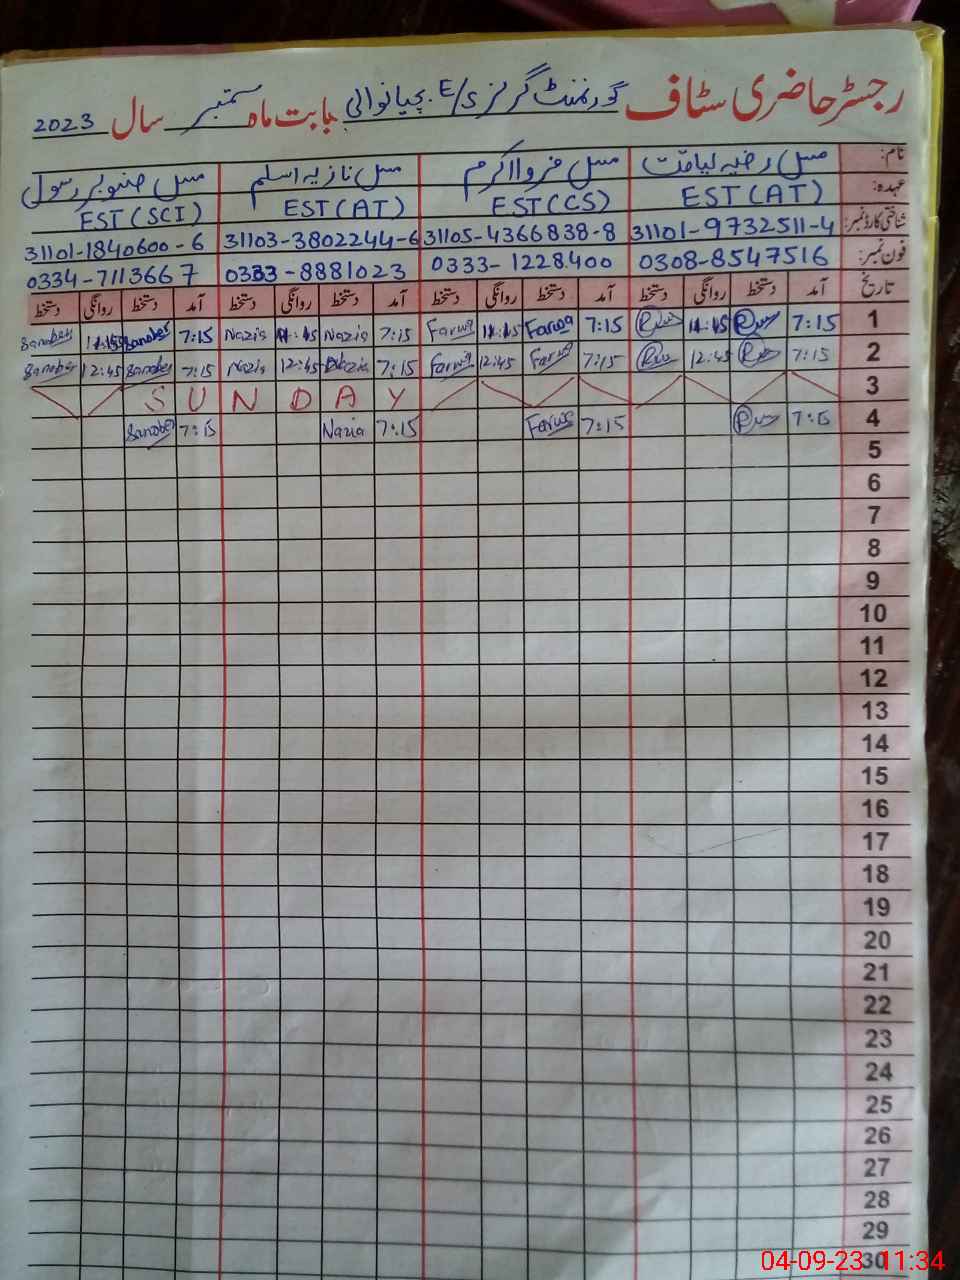 رجسٹر حاضری سٹاف گورنمنٹ گرلز E/S. چیانوالی بابت ماہ ستمبر سال 2023
نام: مس رضیہ لیاقت مس فروا اکرم مس نازیہ اسلم مس صنوبر رسول
عہدہ: EST (AT) EST (CS) EST (AT) EST (SCI)
شناختی کارڈ نمبر: 31101-9732511-4 31105-4366838-8 31103-3802244-6 31101-1840600-6
فون نمبر: 0308-8547516 0333-1228400 0333-8881023 0334-7113667
تاریخ آمد دستخط روانگی دستخط آمد دستخط روانگی دستخط آمد دستخط روانگی دستخط آمد دستخط روانگی دستخط
1 7:15 11:15 7:15 Farwa 11:15 Farwa 7:15 Nazia 11:15 Nazia 7:15 Sanober 11:15 Sanober
2 7:15 12:45 7:15 Farwa 12:45 Farwa 7:15 Nazia 12:45 Nazia 7:15 Sanober 12:45 Sanober
3 SUNDAY
4 7:15 7:15 Farwa 7:15 Nazia 7:15 Sanober
5
6
7
8
9
10
11
12
13
14
15
16
17
18
19
20
21
22
23
24
25
26
27
28
29
30
04-09-23 11:34